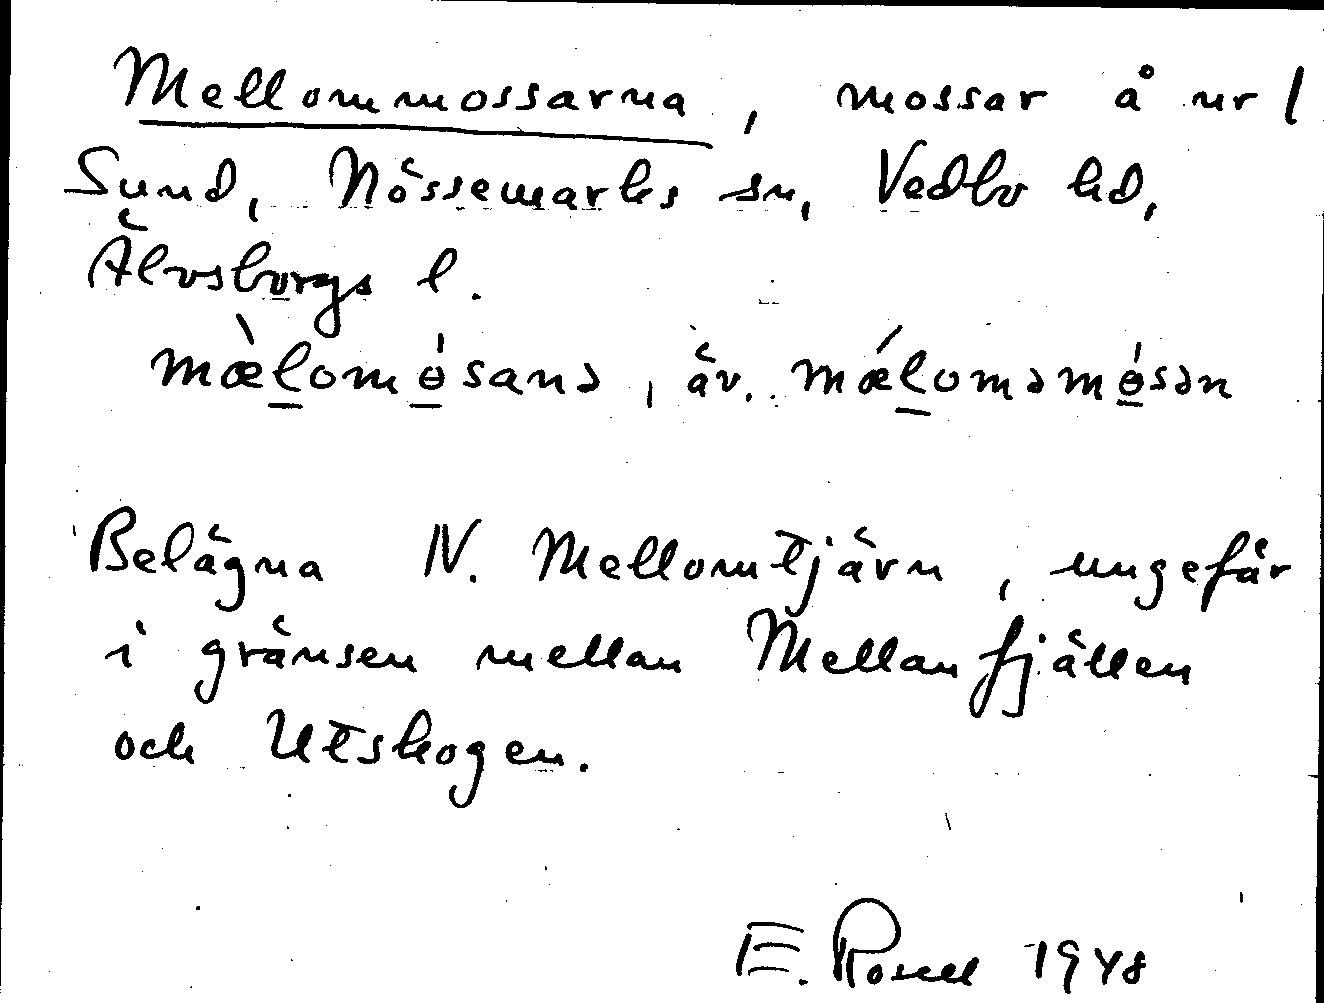 Mellommossarna, mossar å nr 1
Sund, Nössemarks sn, Vedbo hd,
Älvsborgs l.
mæ̀l̠omɵ̠́sanə, äv. mǽl̠oməmɵ̠́sən
Belägna N. Mellomtjärn, ungefär
i gränsen mellan Mellanfjällen
och Utskogen.
E. Rosell 1948